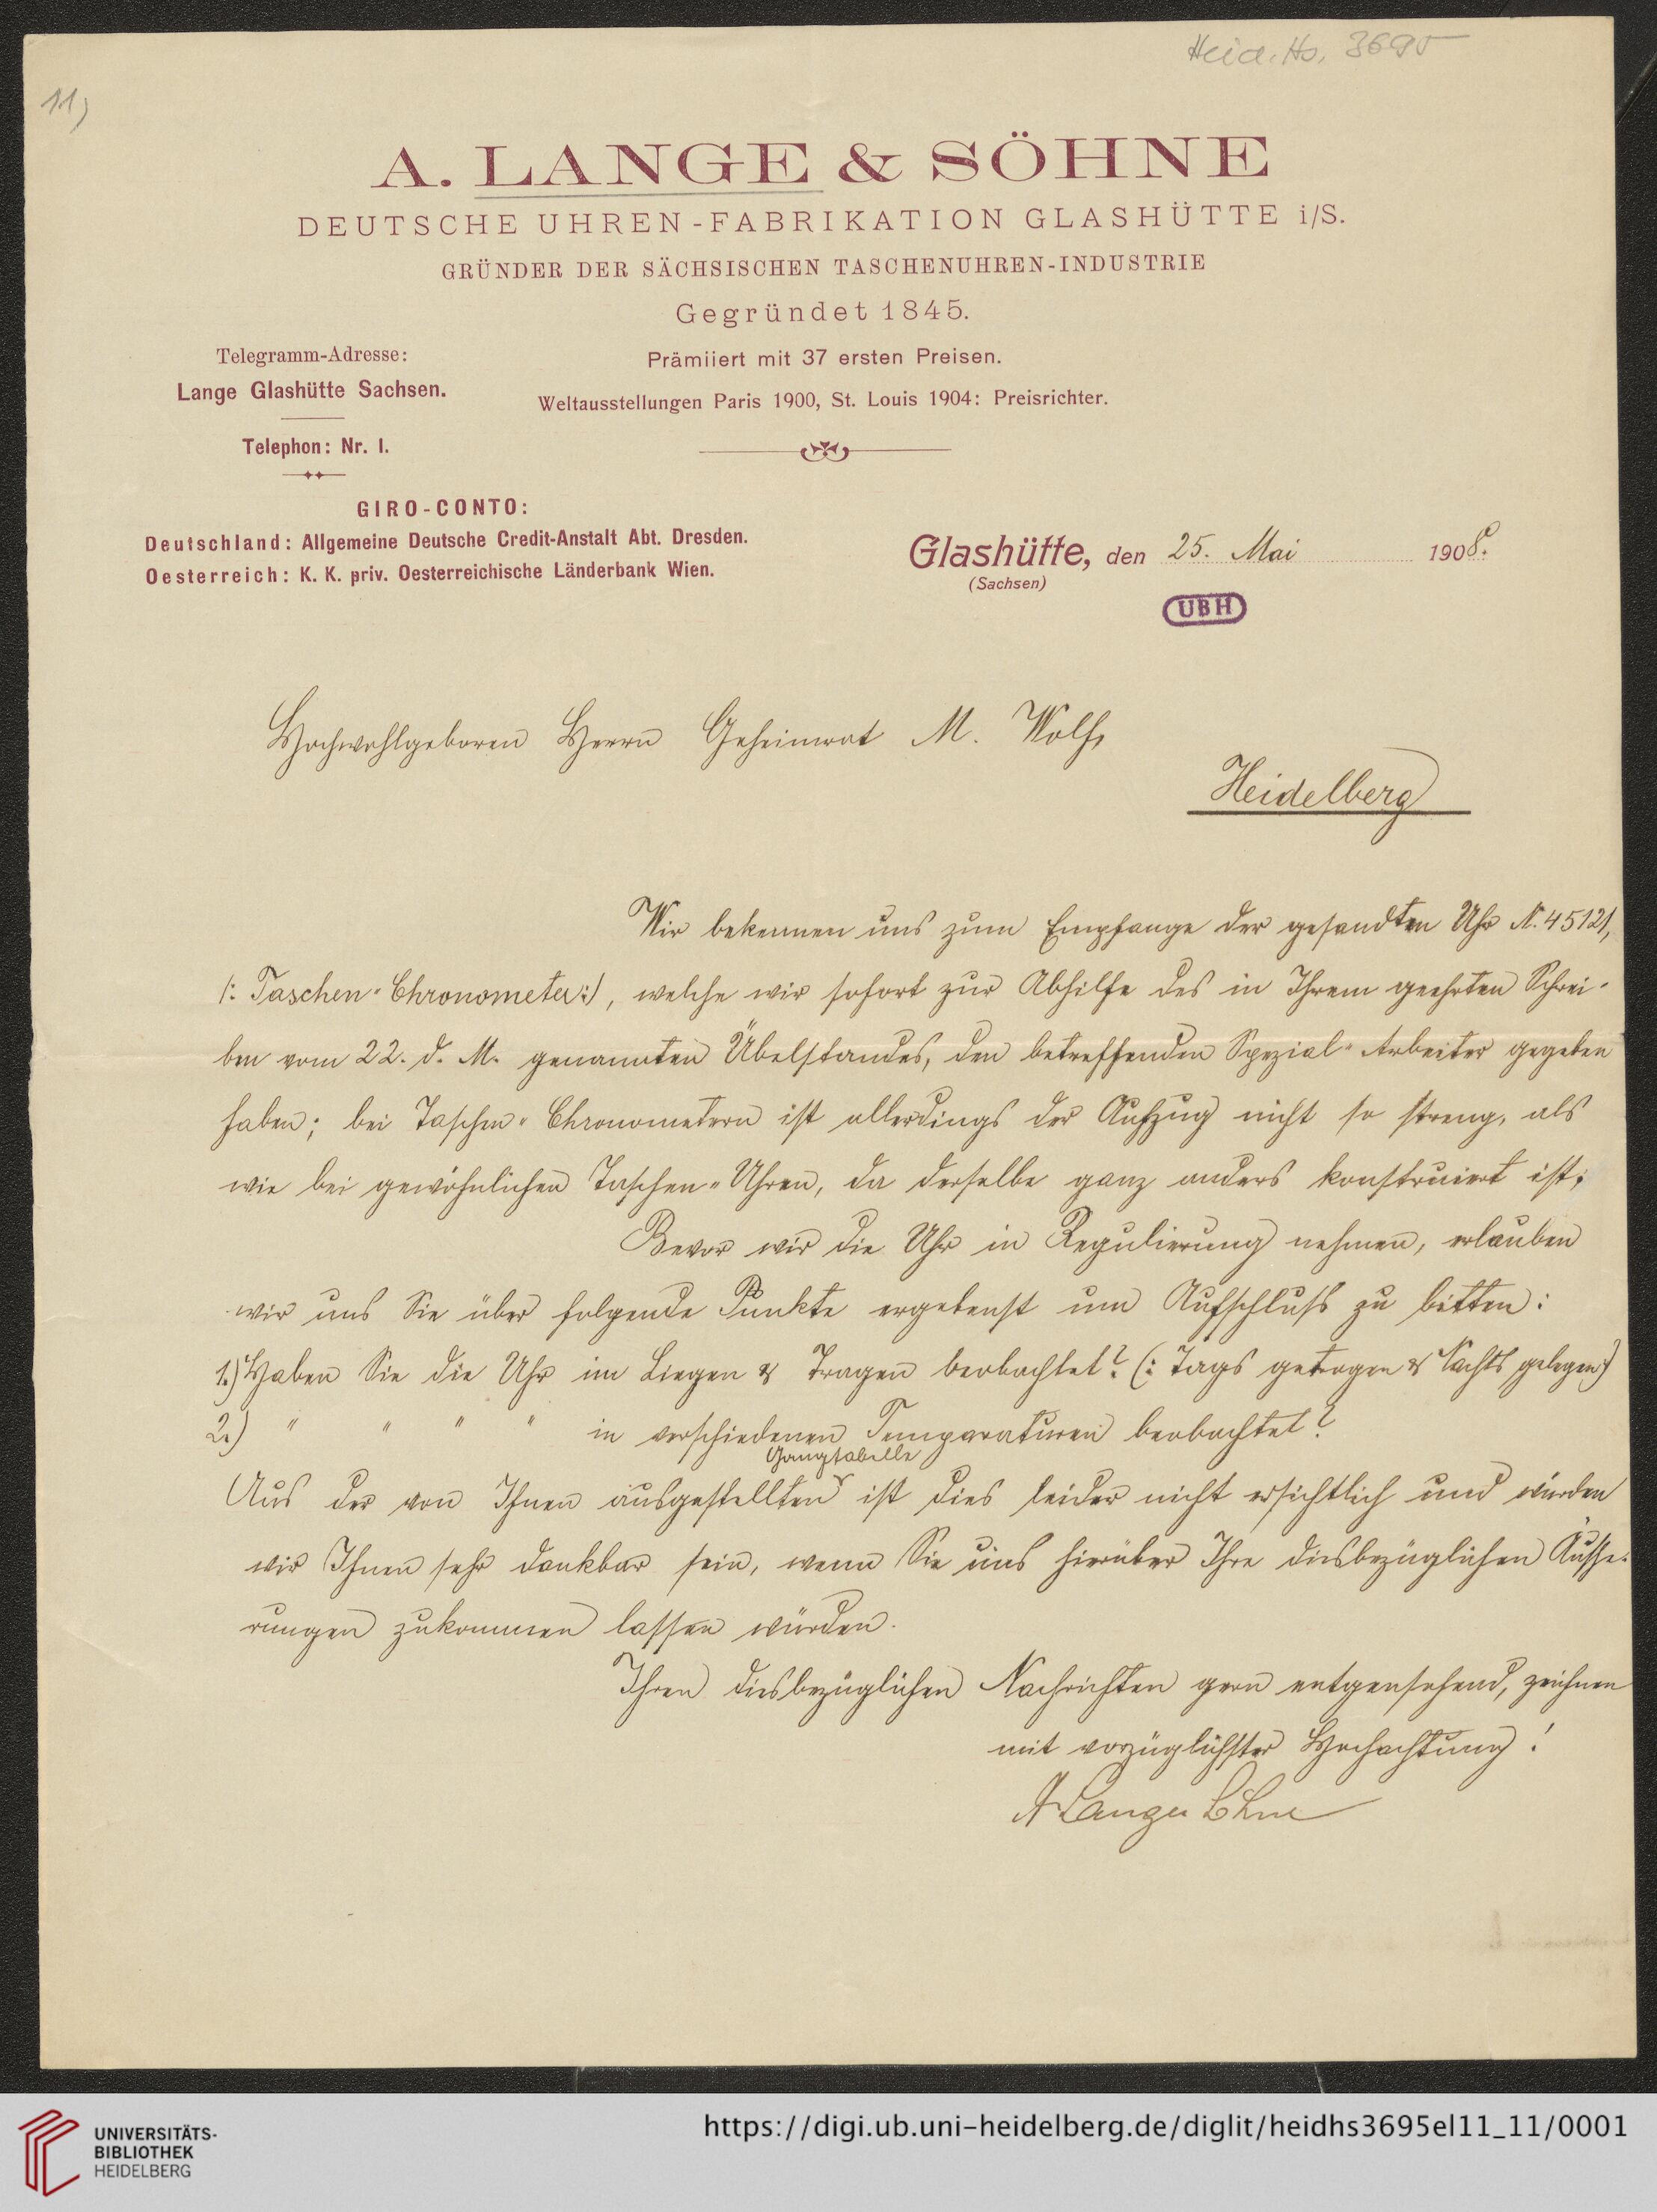 Heid. Hs. 3695
11)
A. LANGE & SÖHNE
DEUTSCHE UHREN-FABRIKATION GLASHÜTTE i/S.
GRÜNDER DER SÄCHSISCHEN TASCHENUHREN-INDUSTRIE
Gegründet 1845.
Telegramm-Adresse:
Lange Glashütte Sachsen.
Telephon: Nr. 1.
Prämiiert mit 37 ersten Preisen.
Weltausstellungen Paris 1900, St. Louis 1904: Preisrichter.
GIRO-CONTO:
Deutschland: Allgemeine Deutsche Credit-Anstalt Abt. Dresden.
Oesterreich: K. K. priv. Oesterreichische Länderbank Wien.
Glashütte, den 25. Mai 1908.
(Sachsen)
UBH
Hochwohlgeboren Herrn Geheimrat M. Wolf,
Heidelberg
Wir bekennen uns zum Empfange der gesandten Uhr N. 45121,
/: Taschen-Chronometer :/, welche wir sofort zur Abhilfe des in Ihrem geehrten Schrei-
ben vom 22. d. M. genannten Übelstandes, den betreffenden Spezial-Arbeiter gegeben
haben; bei Taschen-Chronometern ist allerdings der Aufzug nicht so streng, als
wie bei gewöhnlichen Taschen-Uhren, da derselbe ganz anders konstruiert ist;
Bevor wir die Uhr in Regulierung nehmen, erlauben
wir uns Sie über folgende Punkte ergebenst um Aufschluß zu bitten:
1.) Haben Sie die Uhr im Liegen & Tragen beobachtet? (: Tags getragen & Nachts gelegen :)
2.) " " " " in verschiedenen Temparaturen beobachtet?
Gangtabelle
Aus der von Ihnen ausgestellten ist dies leider nicht ersichtlich und würden
wir Ihnen sehr dankbar sein, wenn Sie uns hierüber Ihre diesbezüglichen Äusse-
rungen zukommen lassen würden.
Ihren diesbezüglichen Nachrichten gern entgensehend, zeichnen
mit vorzüglichster Hochachtung!
A Lange & Söhne
UNIVERSITÄTS-
BIBLIOTHEK
HEIDELBERG
https://digi.ub.uni-heidelberg.de/diglit/heidhs3695el11_11/0001